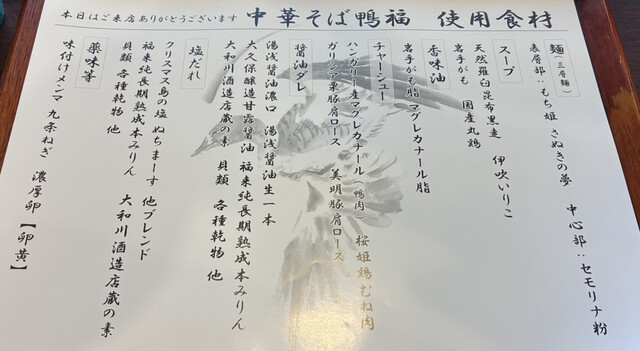 本日はご来店ありがとうございます 中華そば鴨福 使用食材
麺(三層麺)
表層部:もち姫 さぬきの夢 中心部:セモリナ粉
スープ
天然羅臼昆布黒走 伊吹いりこ
岩手がも 国産丸鶏
香味油
岩手がも脂 マグレカナール脂
チャーシュー
ハンガリー産マグレカナール(鴨肉) 桜姫鶏むね肉
ガリシア栗豚肩ロース 美明豚肩ロース
醤油ダレ
湯浅醤油濃口 湯浅醤油生一本
大久保醸造甘露醤油 福来純長期熟成本みりん
大和川酒造店蔵の素 貝類 各種乾物 他
塩だれ
クリスマス島の塩 ぬちまーす 他ブレンド
福来純長期熟成本みりん 大和川酒造店蔵の素
貝類 各種乾物 他
薬味等
味付けメンマ 九条ねぎ 濃厚卵【卵黄】